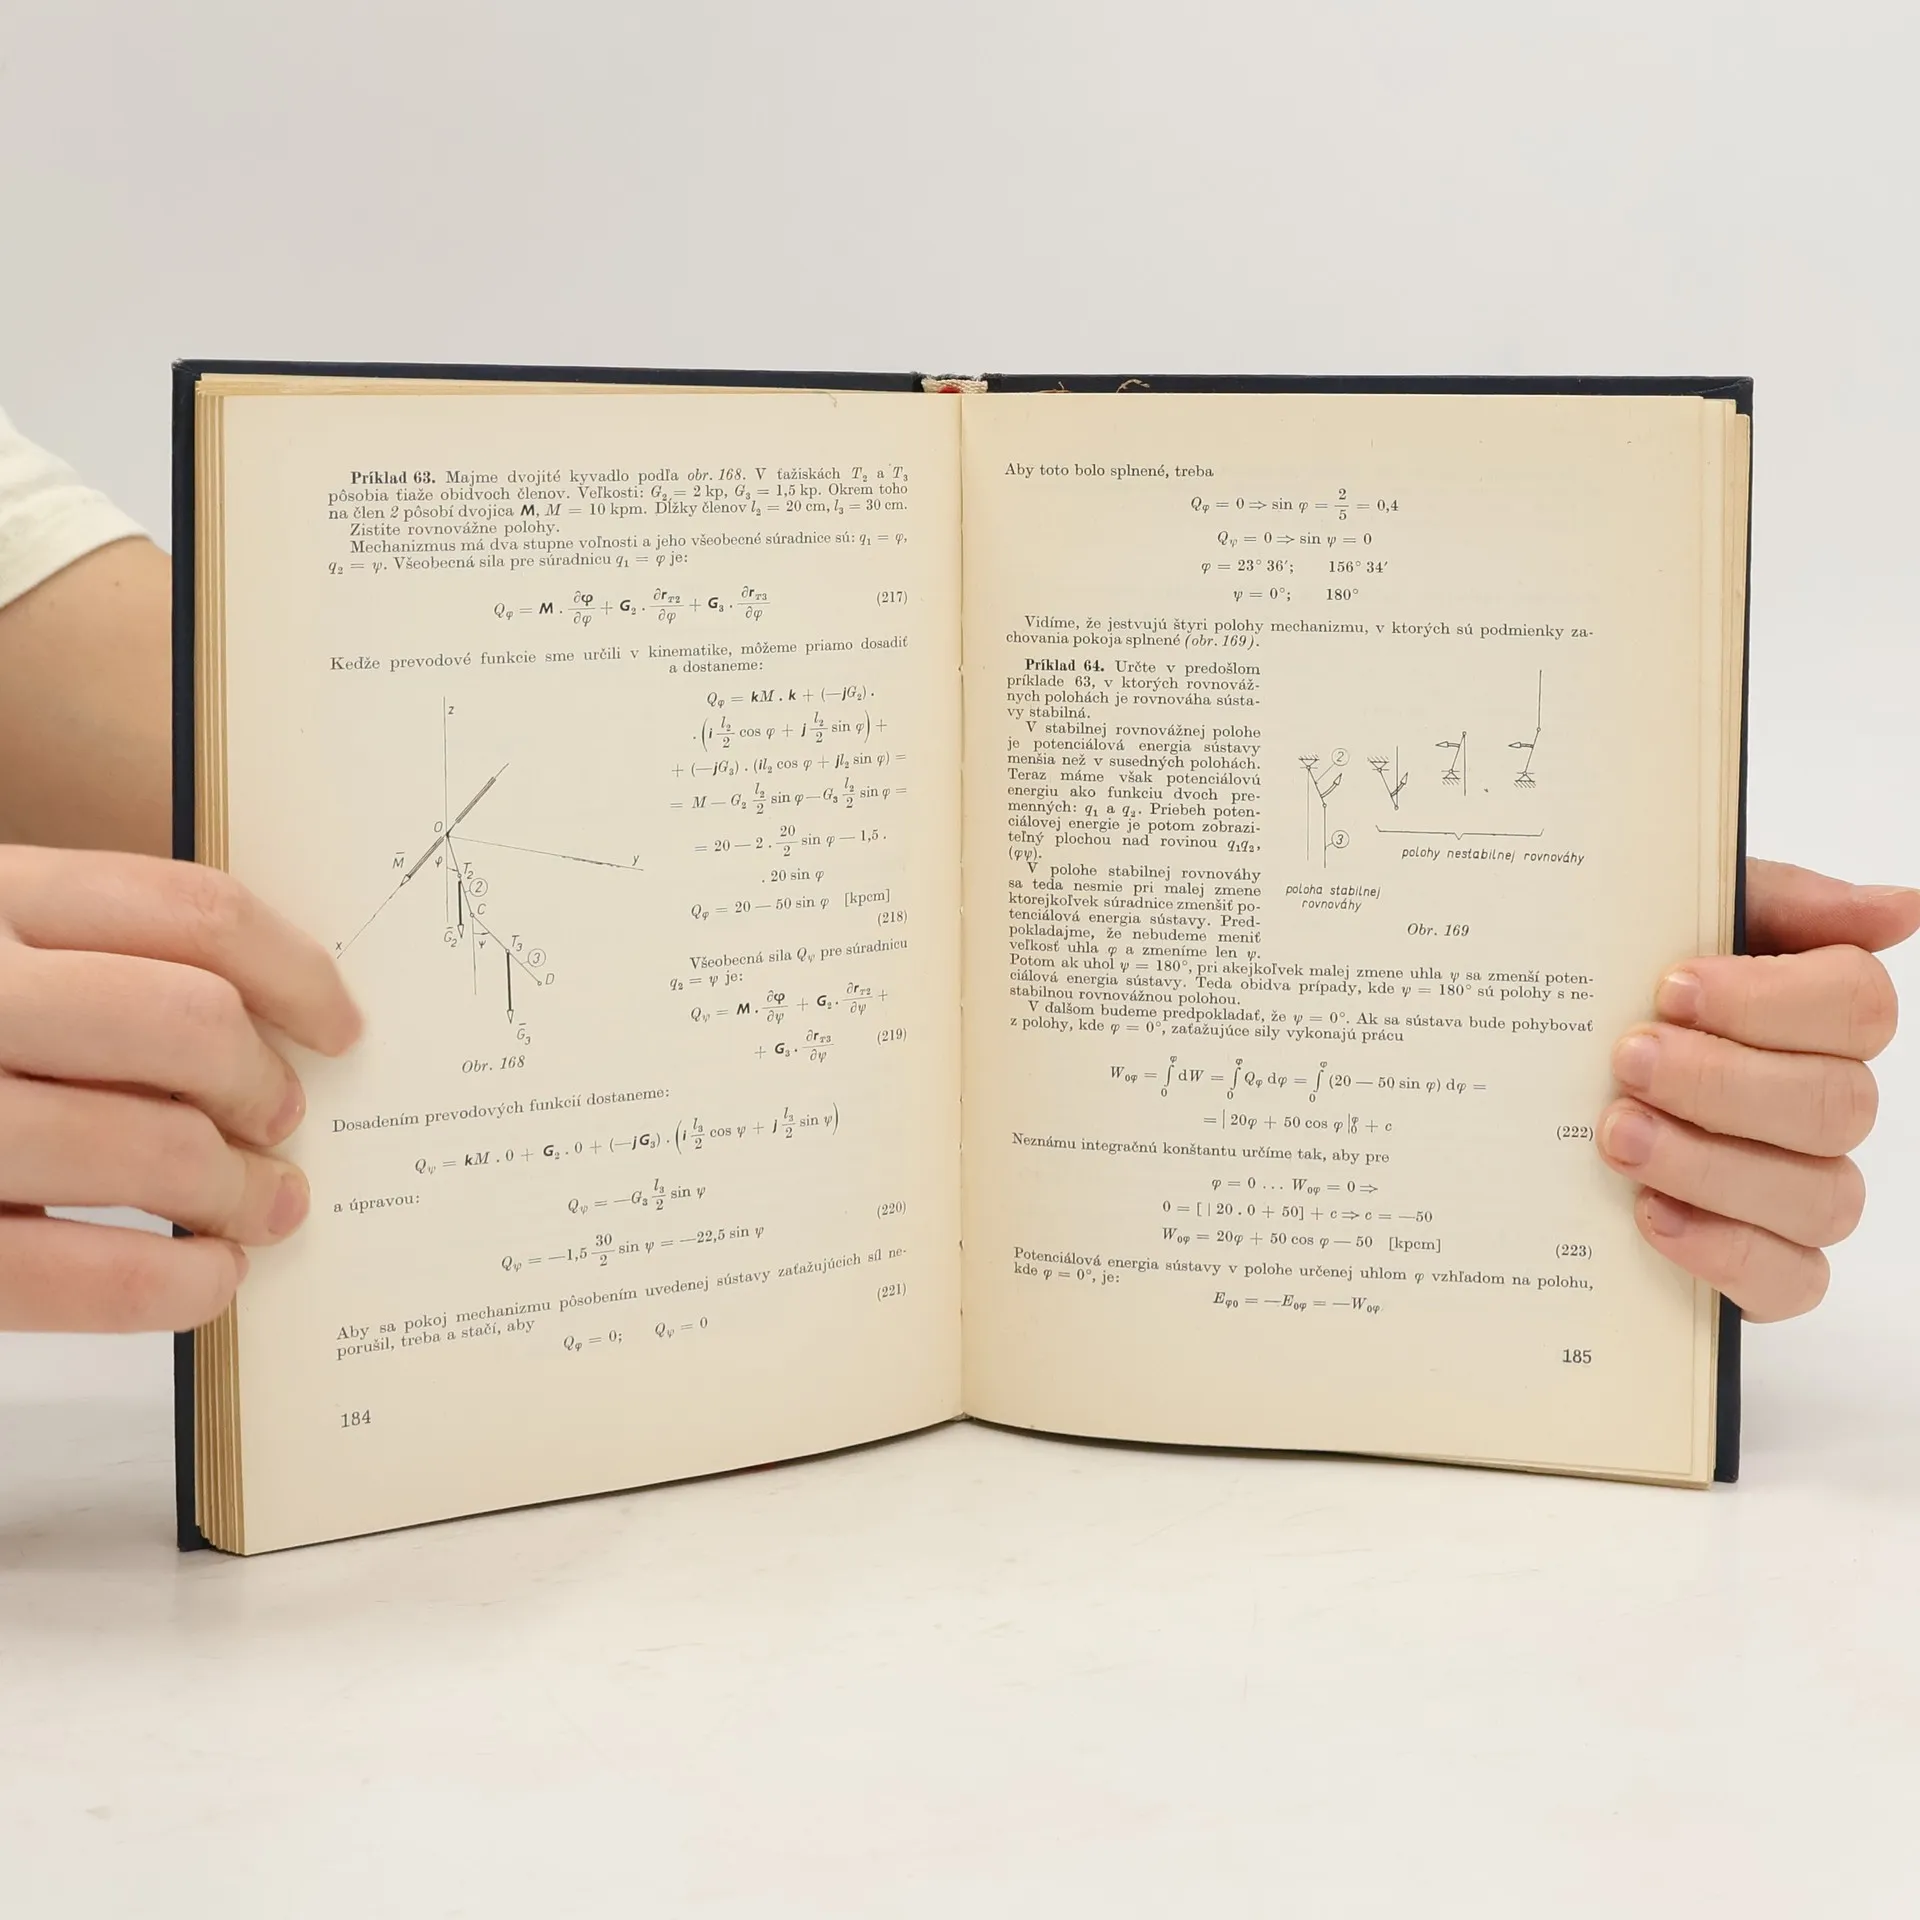 Príklad 63. Majme dvojité kyvadlo podľa obr. 168. V ťažiskách T₂ a T₃
pôsobia tiaže obidvoch členov. Veľkosti: G₂ = 2 kp, G₃ = 1,5 kp. Okrem toho
na člen 2 pôsobí dvojica M, M = 10 kpm. Dĺžky členov l₂ = 20 cm, l₃ = 30 cm.
Zistite rovnovážne polohy.
Mechanizmus má dva stupne voľnosti a jeho všeobecné súradnice sú: q₁ = φ,
q₂ = ψ. Všeobecná sila pre súradnicu q₁ = φ je:
Qφ = M . ∂φ/∂φ + G₂ . ∂r_T2/∂φ + G₃ . ∂r_T3/∂φ (217)
Keďže prevodové funkcie sme určili v kinematike, môžeme priamo dosadiť
a dostaneme:
Qφ = kM . k + (—jG₂) .
. (i l₂/2 cos φ + j l₂/2 sin φ) +
+ (—jG₃) . (il₂ cos φ + jl₂ sin φ) =
= M — G₂ l₂/2 sin φ — G₃ l₂/2 sin φ =
= 20 — 2 . 20/2 sin φ — 1,5 .
. 20 sin φ
Qφ = 20 — 50 sin φ [kpcm]
(218)
Všeobecná sila Qψ pre súradnicu
q₂ = ψ je:
Qψ = M . ∂φ/∂ψ + G₂ . ∂r_T2/∂ψ +
+ G₃ . ∂r_T3/∂ψ (219)
z
O
M̄
φ
T₂
2
y
C
x
Ḡ₂
ψ
T₃
3
D
Ḡ₃
Obr. 168
Dosadením prevodových funkcií dostaneme:
Qψ = kM . 0 + G₂ . 0 + (—jG₃) . (i l₃/2 cos ψ + j l₃/2 sin ψ)
a úpravou:
Qψ = —G₃ l₃/2 sin ψ
(220)
Qψ = —1,5 30/2 sin ψ = —22,5 sin ψ
(221)
Aby sa pokoj mechanizmu pôsobením uvedenej sústavy zaťažujúcich síl ne-
porušil, treba a stačí, aby
Qφ = 0; Qψ = 0
184
Aby toto bolo splnené, treba
Qφ = 0 ⇒ sin φ = 2/5 = 0,4
Qψ = 0 ⇒ sin ψ = 0
φ = 23° 36′; 156° 34′
ψ = 0°; 180°
Vidíme, že jestvujú štyri polohy mechanizmu, v ktorých sú podmienky za-
chovania pokoja splnené (obr. 169).
Príklad 64. Určte v predošlom
príklade 63, v ktorých rovnováž-
nych polohách je rovnováha sústa-
vy stabilná.
V stabilnej rovnovážnej polohe
je potenciálová energia sústavy
menšia než v susedných polohách.
Teraz máme však potenciálovú
energiu ako funkciu dvoch pre-
menných: q₁ a q₂. Priebeh poten-
ciálovej energie je potom zobrazi-
teľný plochou nad rovinou q₁q₂,
(φψ).
V polohe stabilnej rovnováhy
sa teda nesmie pri malej zmene
ktorejkoľvek súradnice zmenšiť po-
tenciálová energia sústavy. Pred-
pokladajme, že nebudeme meniť
veľkosť uhla φ a zmeníme len ψ.
2
3
polohy nestabilnej rovnováhy
poloha stabilnej
rovnováhy
Obr. 169
Potom ak uhol ψ = 180°, pri akejkoľvek malej zmene uhla ψ sa zmenší poten-
ciálová energia sústavy. Teda obidva prípady, kde ψ = 180° sú polohy s ne-
stabilnou rovnovážnou polohou.
V ďalšom budeme predpokladať, že ψ = 0°. Ak sa sústava bude pohybovať
z polohy, kde φ = 0°, zaťažujúce sily vykonajú prácu
W₀φ = ∫₀^φ dW = ∫₀^φ Qφ dφ = ∫₀^φ (20 — 50 sin φ) dφ =
= | 20φ + 50 cos φ |₀^φ + c (222)
Neznámu integračnú konštantu určíme tak, aby pre
φ = 0 ... W₀φ = 0 ⇒
0 = [ | 20 . 0 + 50] + c ⇒ c = —50
W₀φ = 20φ + 50 cos φ — 50 [kpcm] (223)
Potenciálová energia sústavy v polohe určenej uhlom φ vzhľadom na polohu,
kde φ = 0°, je:
Eφ₀ = —E₀φ = —W₀φ
185